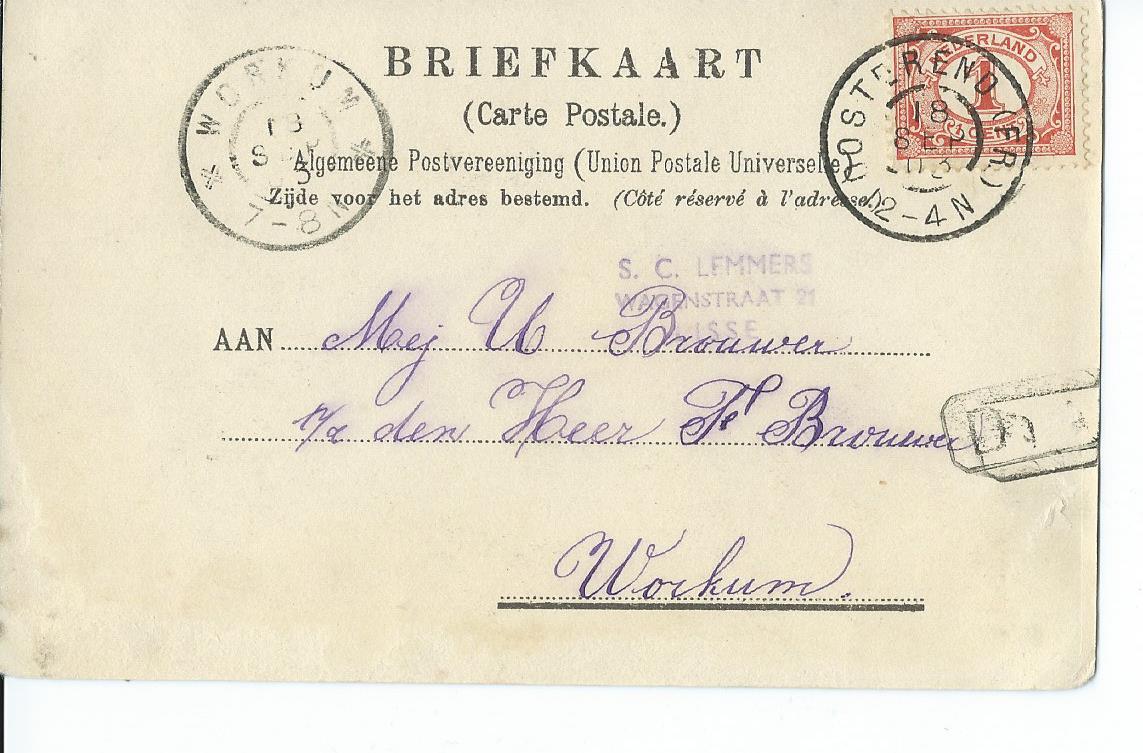 BRIEFKAART
(Carte Postale.)
Algemeene Postvereeniging (Union Postale Universelle)
Zijde voor het adres bestemd. (Côté réservé à l'adresse.)
WORKUM
18
SEP
3
7-8 N
NEDERLAND
1
CENT
OOSTEREND (FR.)
18
SEP
03
12-4 N
S. C. LEMMERS
WAGENSTRAAT 21
LISSE
AAN Mej U Brouwer
p/a den Heer Fs Brouwer
Workum.